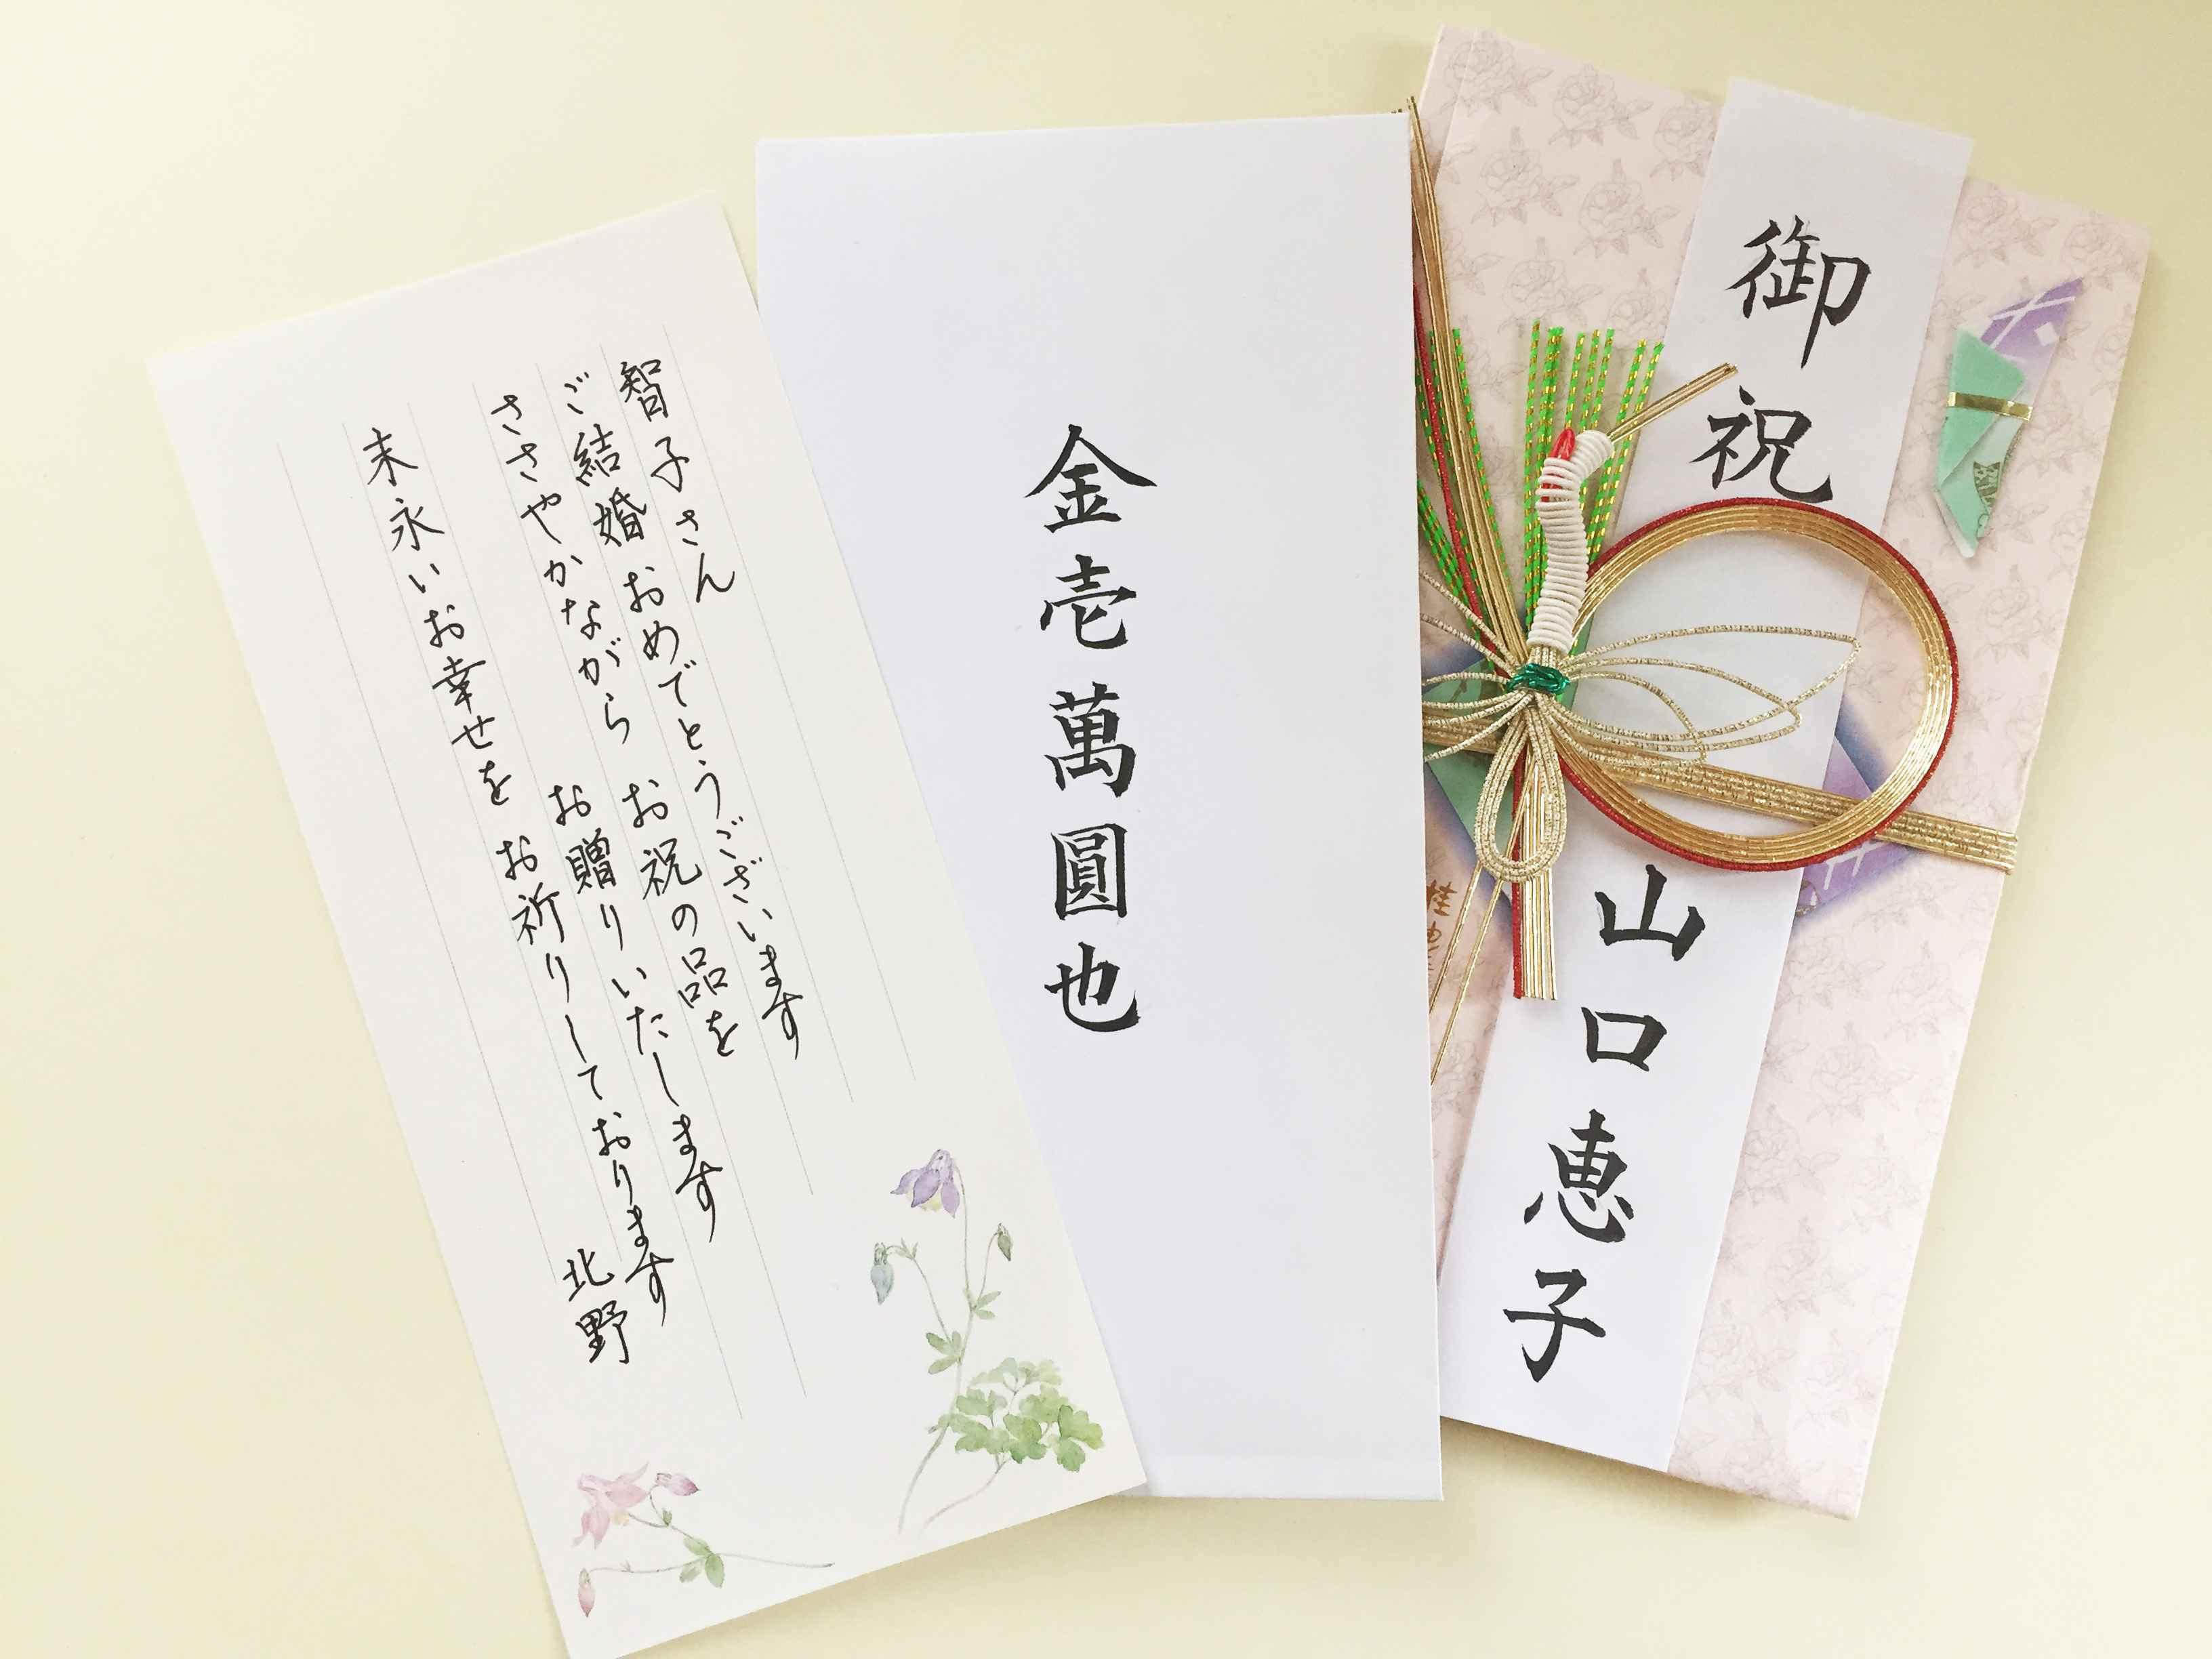 御祝
山口恵子
金壱萬圓也
智子さん
ご結婚おめでとうございます
ささやかながら お祝の品を
お贈りいたします
末永いお幸せを お祈りしております
北野